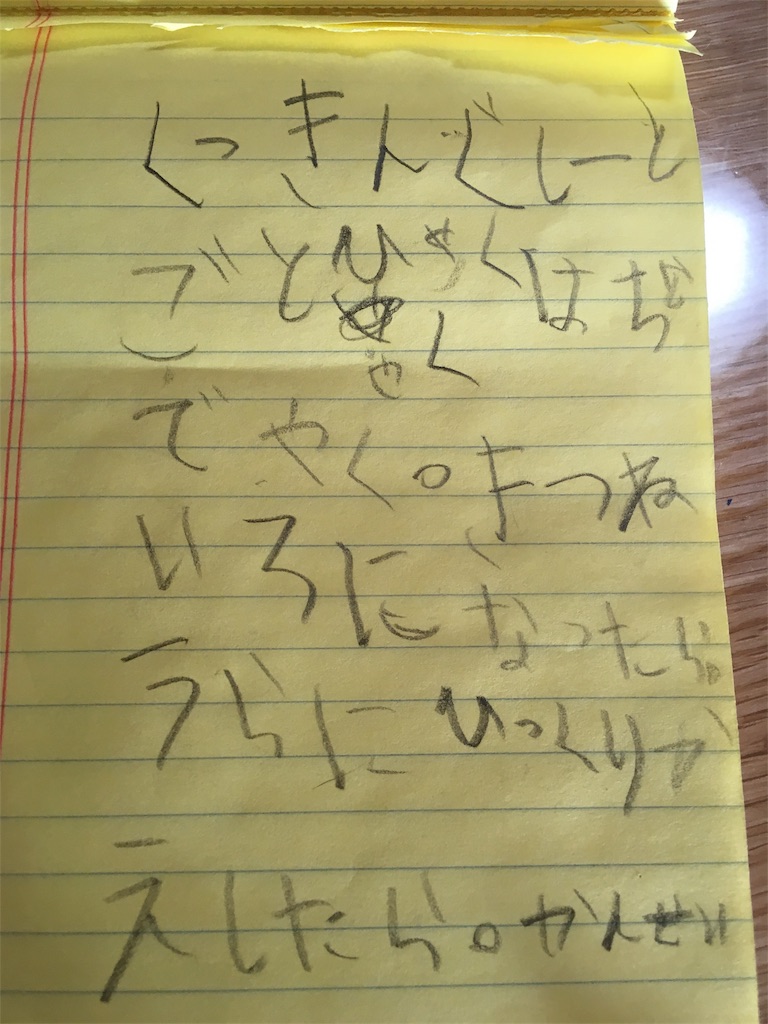 くっきんぐしーと
ごとひゃくはちど
やく
でやく。きつね
いろになったら。
うらにひっくりか
えしたら。かんせい